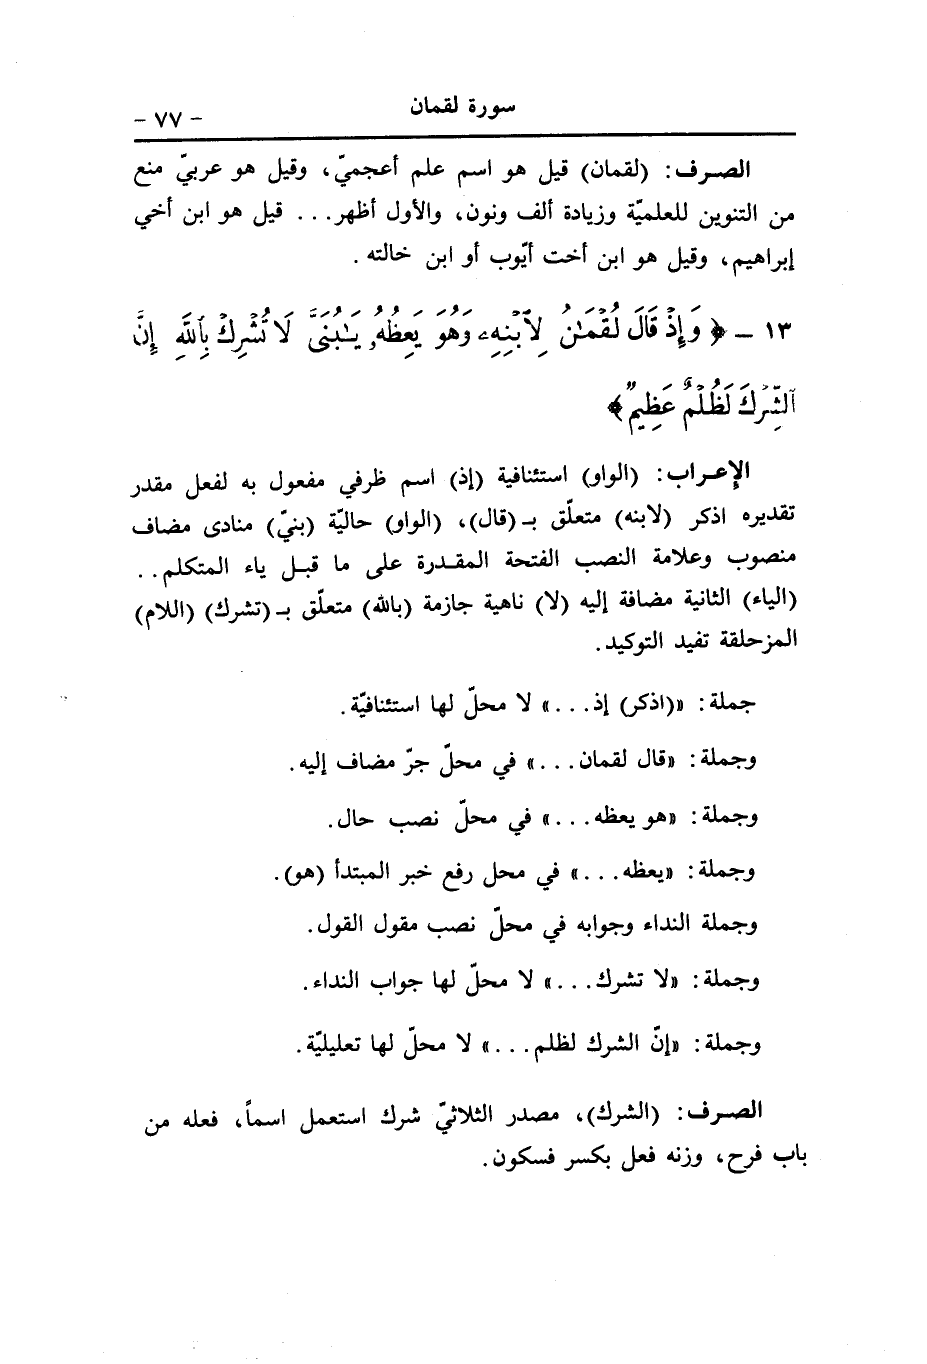 سورة لقمان
- ٧٧ -
الصرف: (لقمان) قيل هو اسم علم أعجميّ، وقيل هو عربيّ منع
من التنوين للعلميّة وزيادة ألف ونون، والأول أظهر... قيل هو ابن أخي
إبراهيم، وقيل هو ابن أخت أيّوب أو ابن خالته.
١٣ - ﴿وَإِذْ قَالَ لُقْمَـٰنُ لِٱبْنِهِۦ وَهُوَ يَعِظُهُۥ يَـٰبُنَىَّ لَا تُشْرِكْ بِٱللَّهِ إِنَّ
ٱلشِّرْكَ لَظُلْمٌ عَظِيمٌ﴾
الإعراب: (الواو) استئنافية (إذ) اسم ظرفي مفعول به لفعل مقدر
تقديره اذكر (لابنه) متعلّق بـ(قال)، (الواو) حاليّة (بنيّ) منادى مضاف
منصوب وعلامة النصب الفتحة المقدرة على ما قبل ياء المتكلم..
(الياء) الثانية مضافة إليه (لا) ناهية جازمة (بالله) متعلّق بـ(تشرك) (اللام)
المزحلقة تفيد التوكيد.
جملة: «(اذكر) إذ...» لا محلّ لها استئنافيّة.
وجملة: «قال لقمان...» في محلّ جرّ مضاف إليه.
وجملة: «هو يعظه...» في محلّ نصب حال.
وجملة: «يعظه...» في محل رفع خبر المبتدأ (هو).
وجملة النداء وجوابه في محلّ نصب مقول القول.
وجملة: «لا تشرك...» لا محلّ لها جواب النداء.
وجملة: «إنّ الشرك لظلم...» لا محلّ لها تعليليّة.
الصرف: (الشرك)، مصدر الثلاثيّ شرك استعمل اسماً، فعله من
باب فرح، وزنه فعل بكسر فسكون.